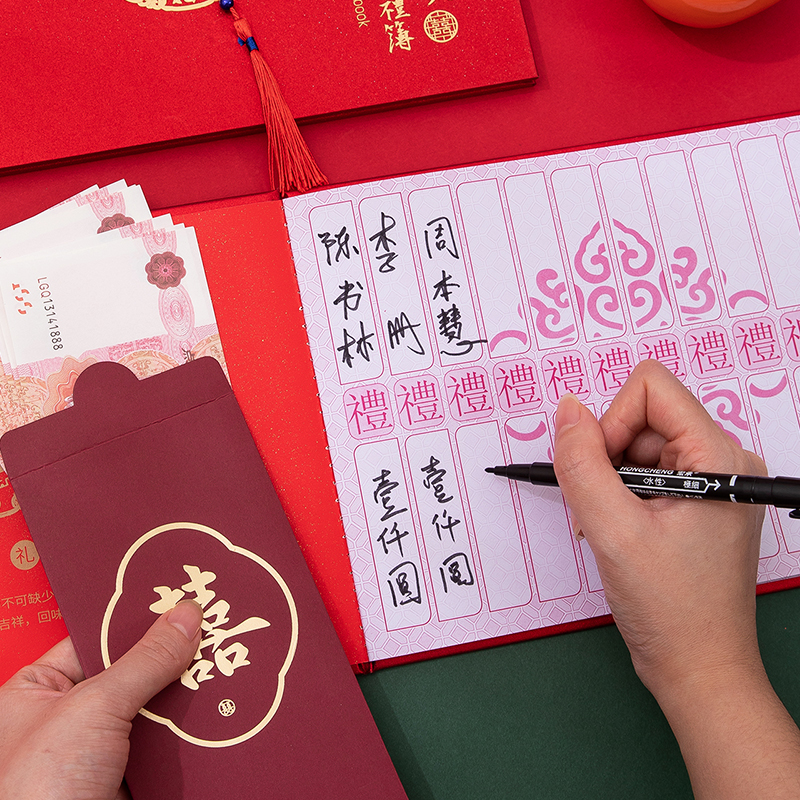 禮簿
book
囍
LGQ13141888
陈书林
李册
周本慧
禮禮禮禮禮禮禮禮禮禮
壹仟圆
壹仟圆
HONGCHENG
〈水性〉 極細
礼
不可缺少
吉祥，回味
囍